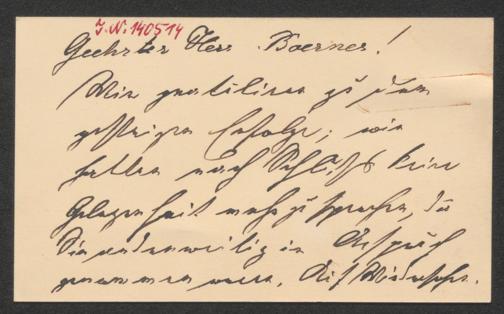 J.N. 140514
Geehrter Herr Boerner!
Wir gratuliren zu dem
gestrigen Erfolge; wir
hatten nach Schluß keine
Gelegenheit mehr zu sprechen, da
Sie anderweitig in Anspruch
genommen waren. Auf Wiedersehn.